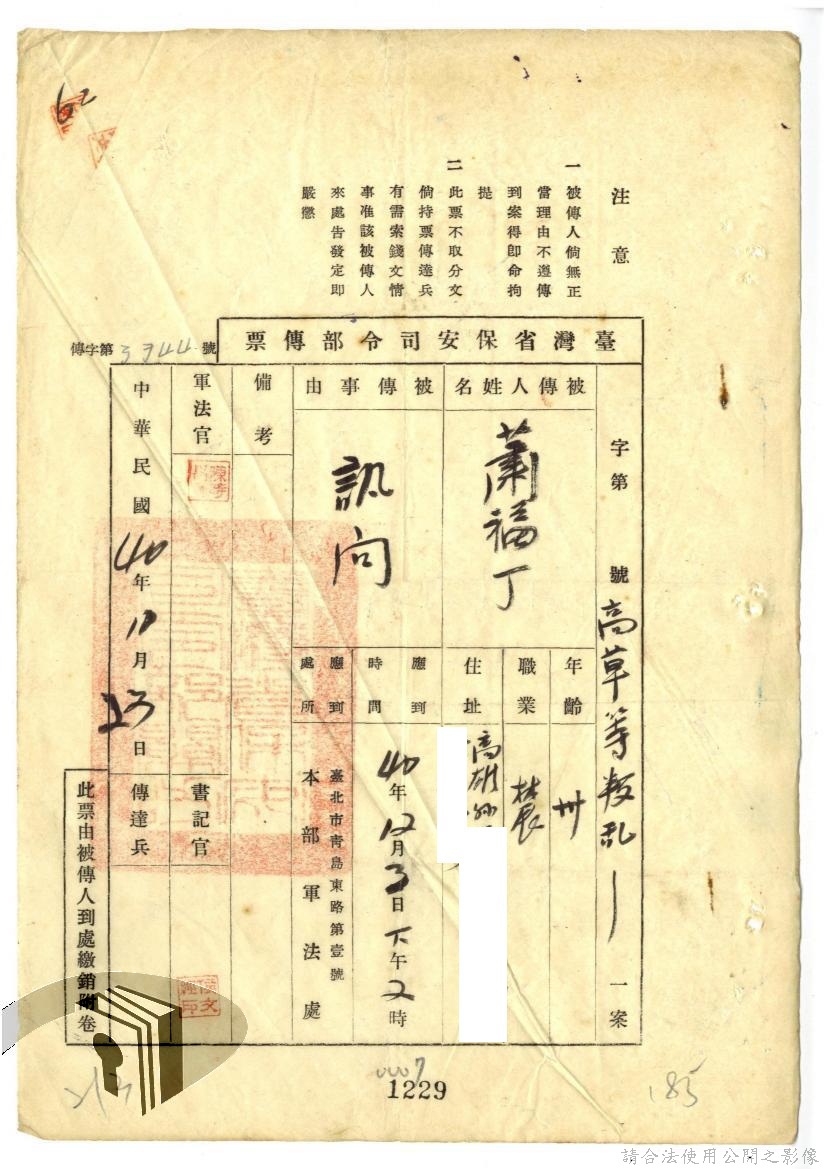 62
注意
一 被傳人倘無正
當理由不遵傳
到案得卽命拘
提
二 此票不取分文
倘持票傳達兵
有需索錢文情
事准該被傳人
來處告發定卽
嚴懲
臺灣省保安司令部傳票
傳字第3744號
字第 號高草等叛乱一案
被傳人姓名
蕭福丁
年齡
卅
職業
農
住址
高雄縣
被傳事由
訊问
應到時間
40年12月3日下午2時
應到處所
臺北市靑島東路第壹號
本部軍法處
備考
軍法官
書記官
中華民國40年11月23日
傳達兵
此票由被傳人到處繳銷附卷
0007
1229
185
請合法使用公開之影像